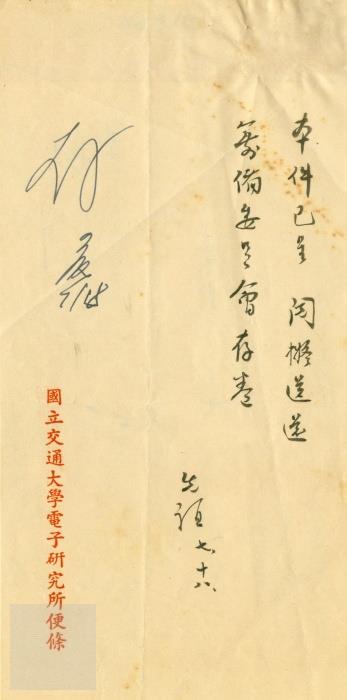 本件已呈 閱擬送還
籌備委員會存卷
七.十八.
存
7/18
國立交通大學電子研究所便條